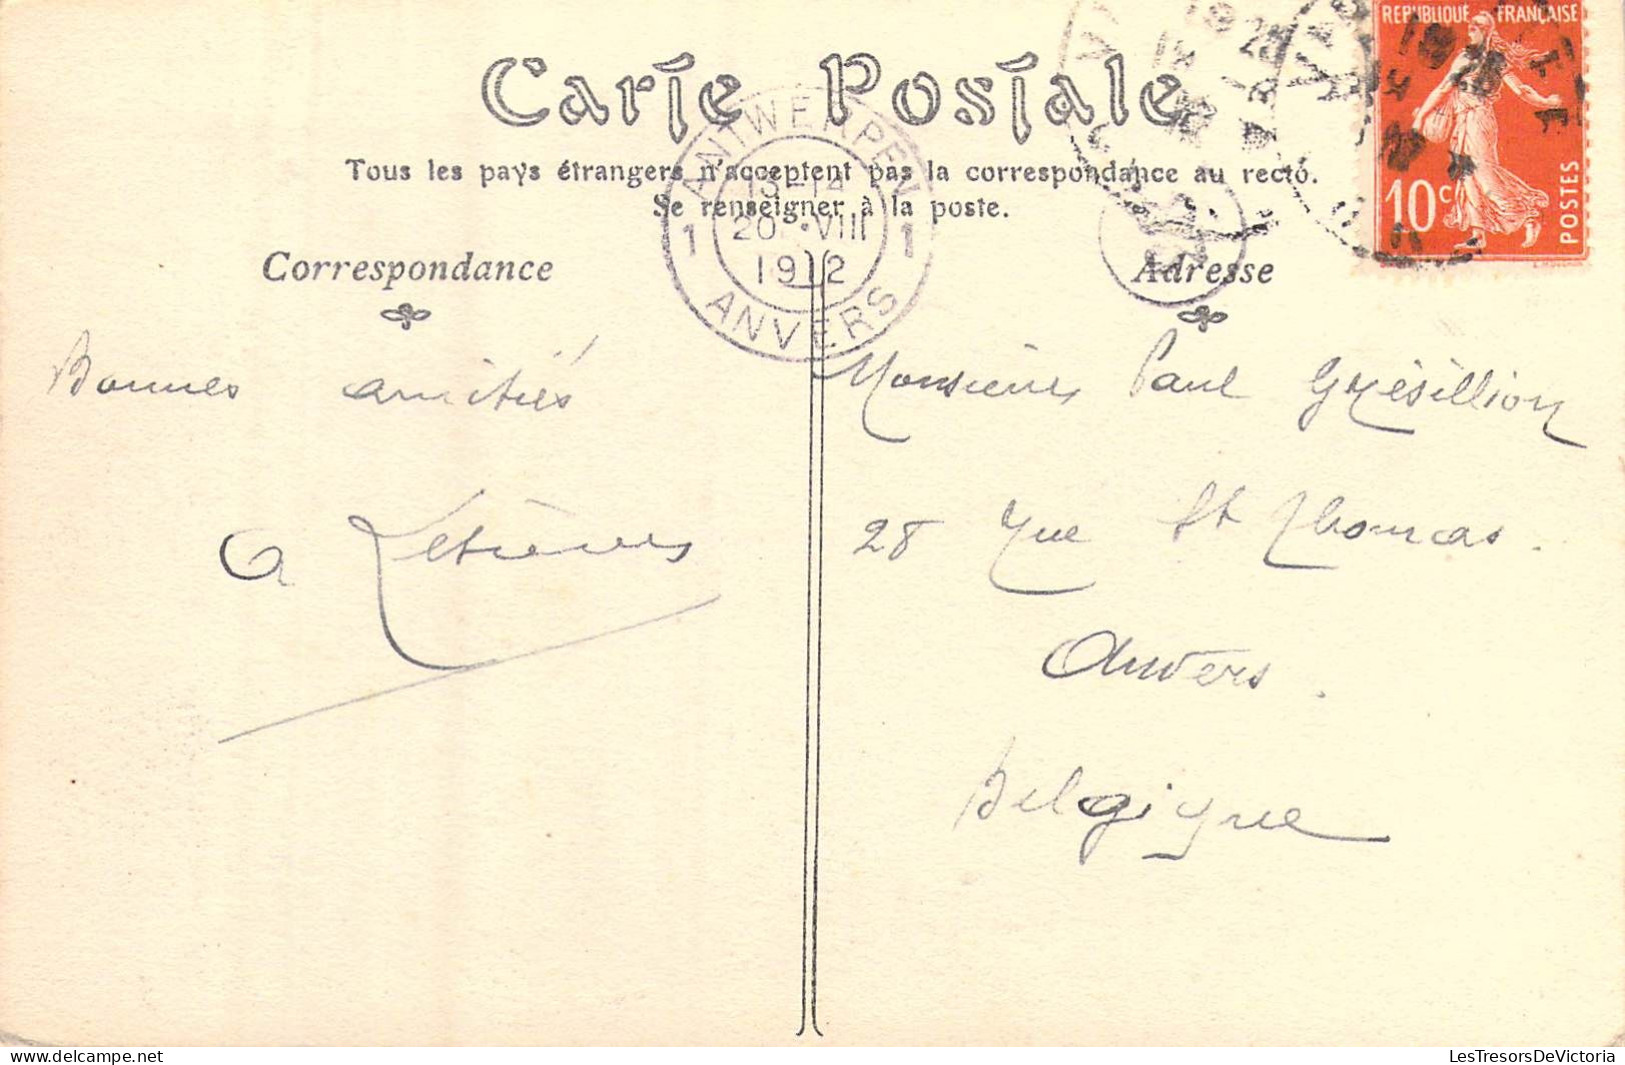 Carte Postale
Tous les pays étrangers n'acceptent pas la correspondance au recto.
Se renseigner à la poste.
Correspondance
Adresse
REPUBLIQUE FRANÇAISE
10c
POSTES
ANTWERPEN
1 1
13-14
20 VIII
1912
ANVERS
Bonnes amitiés
Monsieur Paul Grésillion
28 rue St Thomas.
Anvers.
Belgique
delcampe.net
LesTresorsDeVictoria